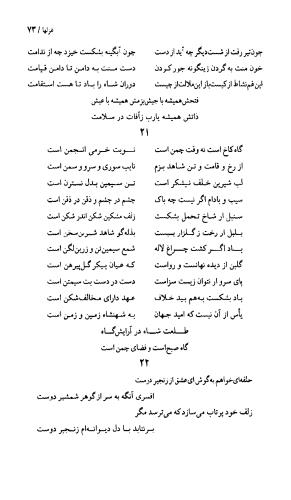 غزلها / ۷۳
چون تیر رفت از شست دیگر چه آید از دست چون آبگینه بشکست خیزد چه از ندامت
خون منت به گردن زینگونه جور کردن دست منت به دامن تا دامن قیامت
این غم نشاط از کیست باز این ملالت از چیست دوران شاه را باد تا هست استقامت
فتحش همیشه با جیش بزمش همیشه با عیش
ذاتش همیشه یارب زآفات در سلامت
۲۱
گاه کاخ است نه وقت چمن است نوبت خرمی انجمن است
از رخ و قامت و تن شاهد بزم نایب سوری و سرو و سمن است
لب شیرین خلف نیشکر است تن سیمین بدل نسترن است
سیب و بادام اگر نیست چه باک چشم در چشم و ذقن در ذقن است
سنبل ار شاخ تحمل بشکست زلف مشکین شکن اندر شکن است
بلبل ار رخت ز گلزار ببست بذله گو شاهد شیرین سخن است
باد اگر کشت چراغ لاله شمع سیمین تن و زرین لگن است
گلبن از دیده نهانست و رواست که عیان پیکر گل پیرهن است
پای سرو ار نتوان زیست سزاست دست در دست بت سیمتن است
باد بشکست بهم بید خلاف عهد دارای مخالف شکن است
یأس از آن نیست که امید جهان به شهنشاه زمین و زمن است
طلعت شاه در آرایش گاه
گاه صبح است و فضای چمن است
۲۲
حلقه‌ای خواهم به گوش ای عشق از زنجیر دوست
افسری آنگه به سر از گوهر شمشیر دوست
زلف خود پرتاب می‌سازد که می‌ترسد مگر
برنتابد با دل دیوانه‌ام زنجیر دوست